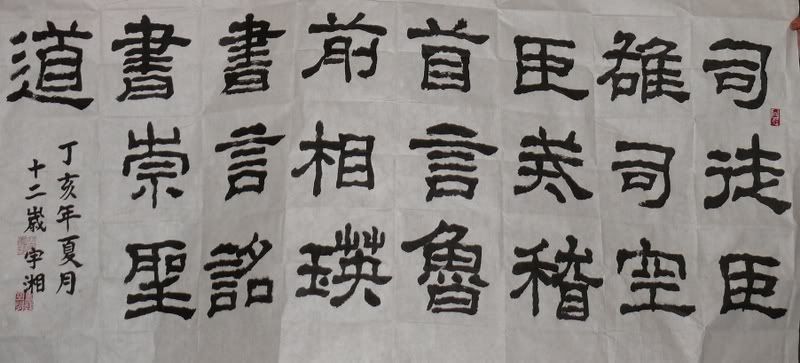 司徒臣
雄司空
臣戒稽
首言魯
前相瑛
書言詔
書崇聖
道
丁亥年夏月
十二歲宇湘